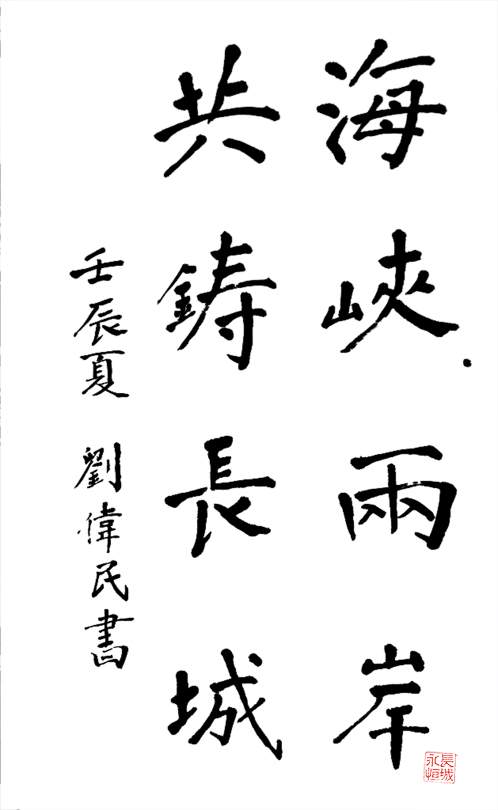 海峽兩岸
共鑄長城
壬辰夏 劉偉民書
長城永恒